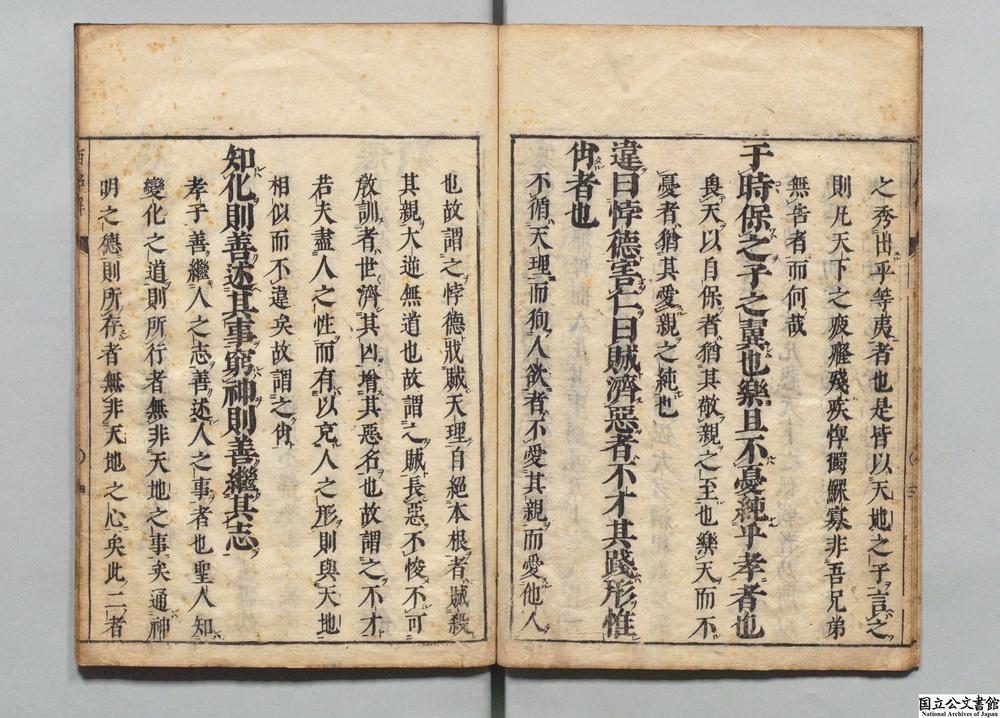 之秀出乎等夷者也是皆以天地之子言之
則凡天下之疲癃殘疾惸獨鰥寡非吾兄弟
無告者而何哉
于時保之子之翼也樂且不憂純乎孝者也
畏天以自保者猶其敬親之至也樂天而不
憂者猶其愛親之純也
違曰悖德害仁曰賊濟惡者不才其踐形惟
肖者也
不循天理而狥人欲者不愛其親而愛他人
也故謂之悖德戕賊天理自絕本根者賊殺
其親大逆無道也故謂之賊長惡不悛不可
敎訓者世濟其凶增其惡名也故謂之不才
若夫盡人之性而有以克人之形則與天地
相似而不違矣故謂之肖
知化則善述其事窮神則善繼其志
孝子善繼人之志善述人之事者也聖人知
變化之道則所行者無非天地之事矣通神
明之德則所存者無非天地之心矣此二者
四
国立公文書館
National Archives of Japan